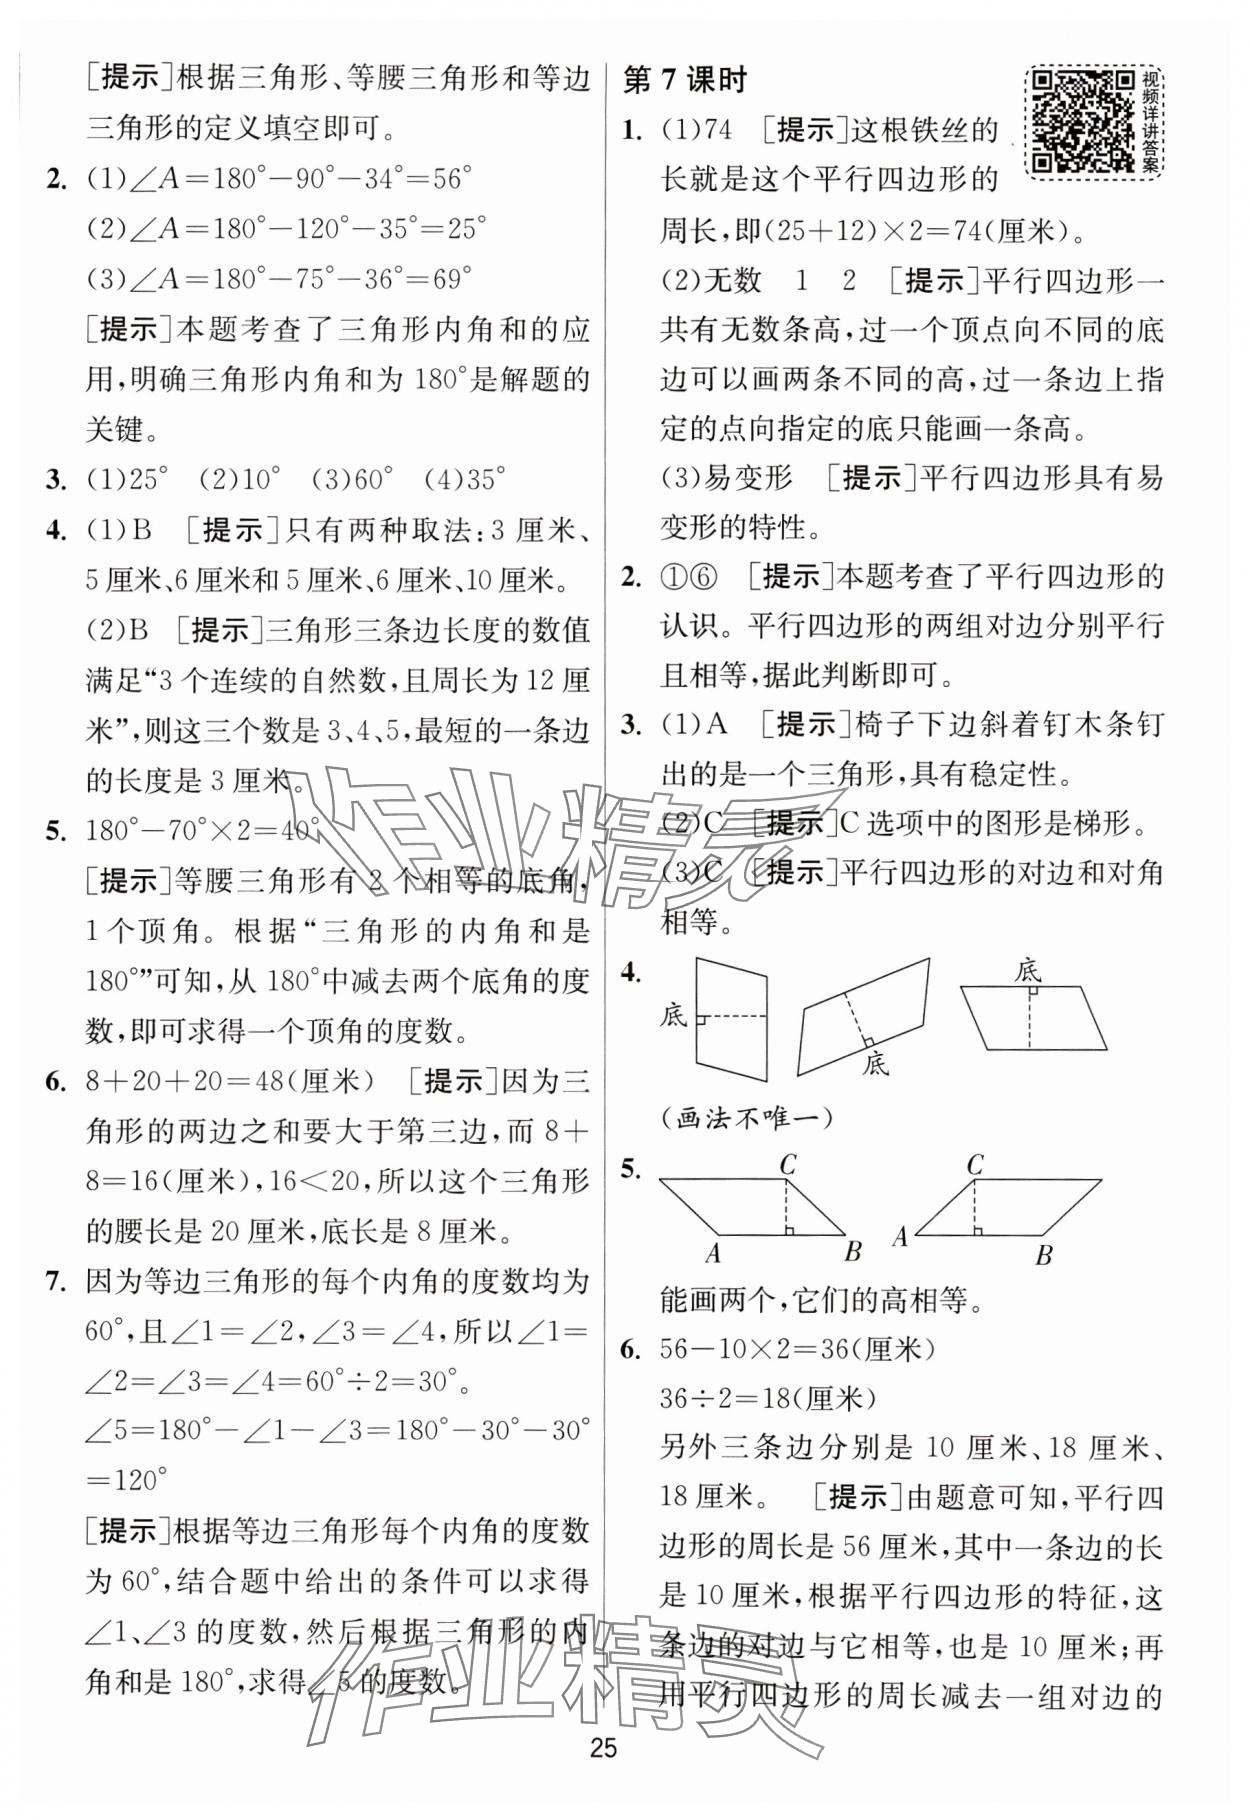 [提示]根据三角形、等腰三角形和等边
三角形的定义填空即可。
2. (1)∠A=180°-90°-34°=56°
(2)∠A=180°-120°-35°=25°
(3)∠A=180°-75°-36°=69°
[提示]本题考查了三角形内角和的应
用,明确三角形内角和为180°是解题的
关键。
3. (1)25° (2)10° (3)60° (4)35°
4. (1)B [提示]只有两种取法:3厘米、
5厘米、6厘米和5厘米、6厘米、10厘米。
(2)B [提示]三角形三条边长度的数值
满足“3个连续的自然数,且周长为12厘
米”,则这三个数是3、4、5,最短的一条边
的长度是3厘米。
5. 180°-70°×2=40°
[提示]等腰三角形有2个相等的底角,
1个顶角。根据“三角形的内角和是
180°”可知,从180°中减去两个底角的度
数,即可求得一个顶角的度数。
6. 8+20+20=48(厘米) [提示]因为三
角形的两边之和要大于第三边,而8+
8=16(厘米),16<20,所以这个三角形
的腰长是20厘米,底长是8厘米。
7. 因为等边三角形的每个内角的度数均为
60°,且∠1=∠2,∠3=∠4,所以∠1=
∠2=∠3=∠4=60°÷2=30°。
∠5=180°-∠1-∠3=180°-30°-30°
=120°
[提示]根据等边三角形每个内角的度数
为60°,结合题中给出的条件可以求得
∠1、∠3的度数,然后根据三角形的内
角和是180°,求得∠5的度数。
第7课时
视频详讲答案
1. (1)74 [提示]这根铁丝的
长就是这个平行四边形的
周长,即(25+12)×2=74(厘米)。
(2)无数 1 2 [提示]平行四边形一
共有无数条高,过一个顶点向不同的底
边可以画两条不同的高,过一条边上指
定的点向指定的底只能画一条高。
(3)易变形 [提示]平行四边形具有易
变形的特性。
2. ①⑥ [提示]本题考查了平行四边形的
认识。平行四边形的两组对边分别平行
且相等,据此判断即可。
3. (1)A [提示]椅子下边斜着钉木条钉
出的是一个三角形,具有稳定性。
(2)C [提示]C选项中的图形是梯形。
(3)C [提示]平行四边形的对边和对角
相等。
4.
底 底 底
(画法不唯一)
5.
C C
A B A B
能画两个,它们的高相等。
6. 56-10×2=36(厘米)
36÷2=18(厘米)
另外三条边分别是10厘米、18厘米、
18厘米。 [提示]由题意可知,平行四
边形的周长是56厘米,其中一条边的长
是10厘米,根据平行四边形的特征,这
条边的对边与它相等,也是10厘米;再
用平行四边形的周长减去一组对边的
作业精灵
作业精灵
25